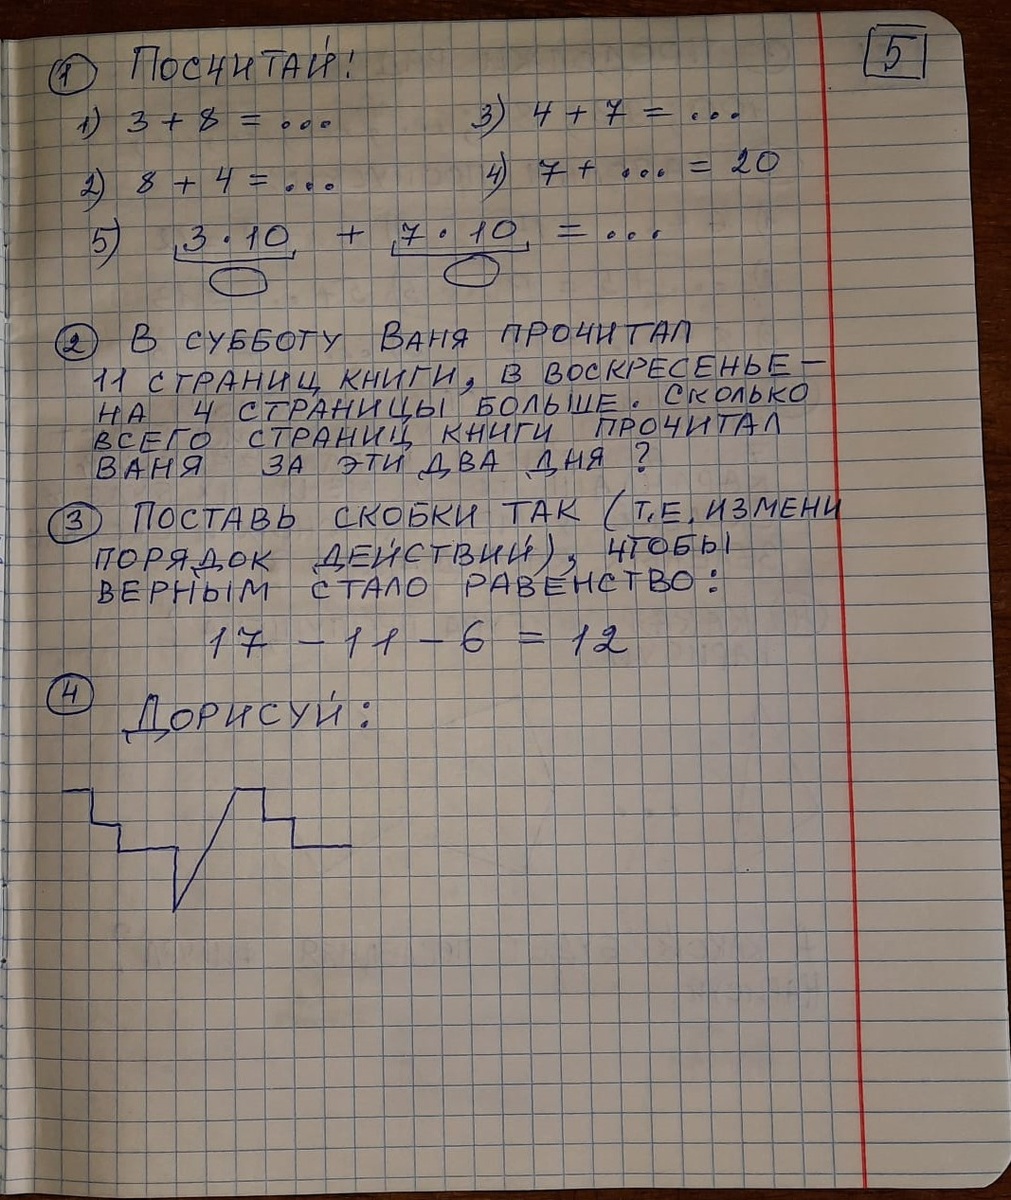 5
① Посчитай!
1) 3 + 8 = ... 3) 4 + 7 = ...
2) 8 + 4 = ... 4) 7 + ... = 20
5) 3 · 10 + 7 · 10 = ...
② В субботу Ваня прочитал
11 страниц книги, в воскресенье –
на 4 страницы больше. Сколько
всего страниц книги прочитал
Ваня за эти два дня?
③ Поставь скобки так (т.е. измени
порядок действий), чтобы
верным стало равенство:
17 – 11 – 6 = 12
④ Дорисуй: